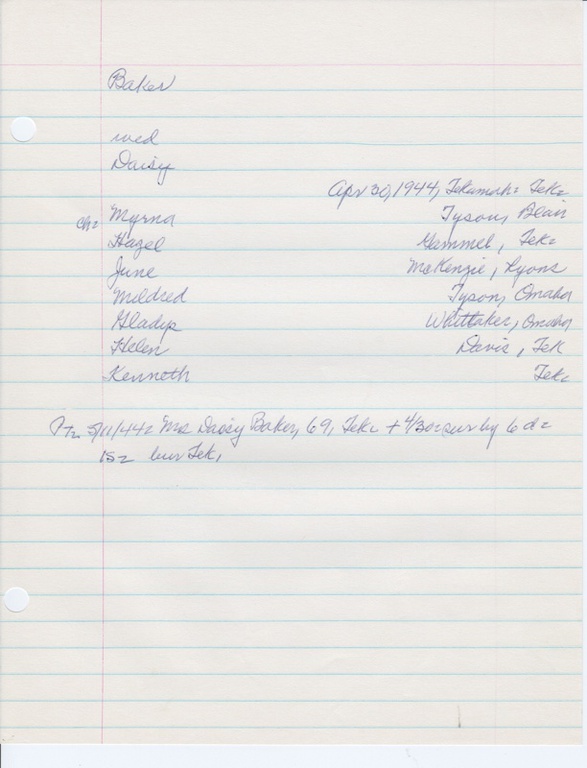 Baker
wed
Daisy
Apr 30, 1944, Tekamah: Tek:
ch: Myrna Tyson, Blair
Hazel Gammel, Tek:
June McKenzie, Lyons
Mildred Tyson, Omaha
Gladys Whittaker, Omaha
Helen Davis, Tek
Kenneth Tek:
5/11/44: Mrs Daisy Baker, 69, Tek: + 4/30: sur by 6 d:
1s: bur Tek.